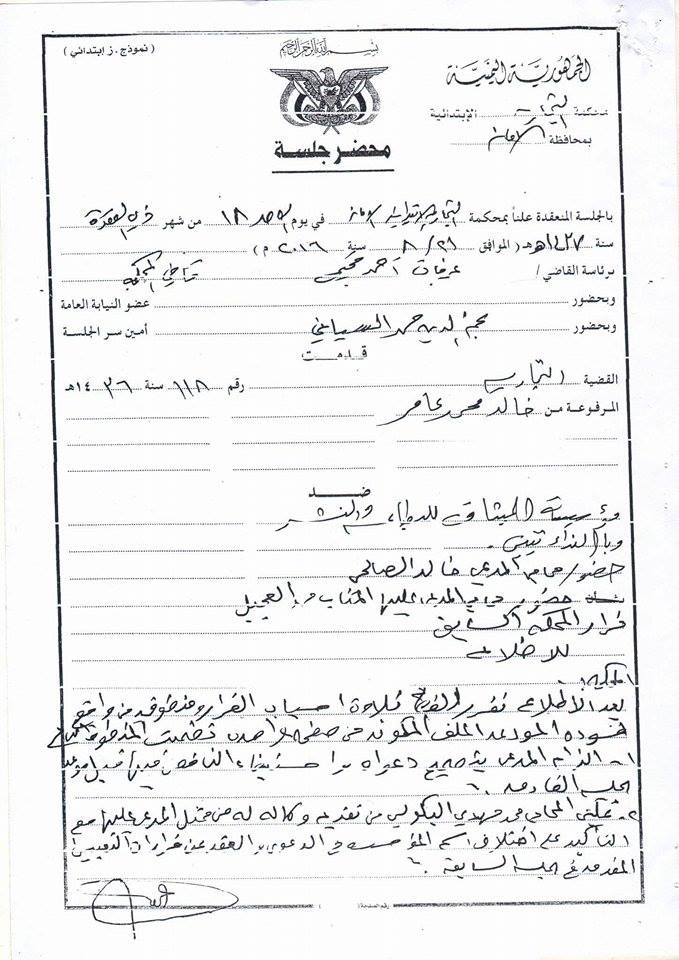 (نموذج. ز إبتدائي)
بسم الله الرحمن الرحيم
الجمهورية اليمنية
محكمة الإبتدائية
بمحافظة
محضر جلسة
بالجلسة المنعقدة علناً بمحكمة في يوم الاحد ١٨ من شهر ذي القعدة
سنة ١٤٣٧هـ (الموافق ٢١/ ٨ سنة ٢٠١٦ م)
برئاسة القاضي/ عرفات احمد قاضي المحكمة
وبحضور عضو النيابة العامة
وبحضور نجم الدين حمد السياني أمين سر الجلسة
قدمت
القضية التجارية رقم ١١٨ سنة ١٤٣٦هـ
المرفوعة من خالد محمد عامر
ضد
مؤسسة الميثاق للطباعة والنشر
وبالنداء تبين.
حضور/ محامي المدعي خالد الصالحي
حضور المدعى عليها
قرار المحكمة السابق
للاطلاع
المحكمة:
بعد الاطلاع نقرر تلاوة اسباب القرار ومنطوقه من واقع
مسوده المودعه الملف المكونه من صفحه واحده تضمنت المنطوق
١- الزام المدعي بتصحيح دعواه
الجلسة القادمة.
٢- تمكين المحامي محمد مهدي البكولي من تقديم وكاله له من ممثل المدعى عليها مع
التأكيد على اختلاف اسم المؤسسة في الدعوى والعقد عن قرارات التعيين
المقدمة في الجلسة السابقة.
رقم الصفحة ( )